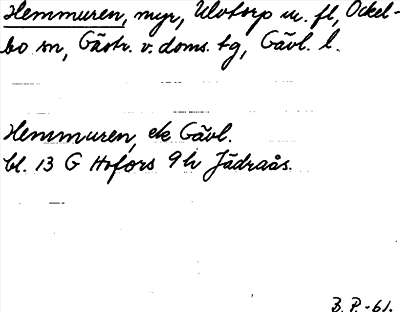 Hemmuren, myr, Ulvtorp m. fl, Ockel-
bo sn, Gästr. v. doms. tg, Gävl. l.
Hemmuren, ek Gävl.
bl. 13 G Hofors 9 h Jädraås.
B. P. -61.